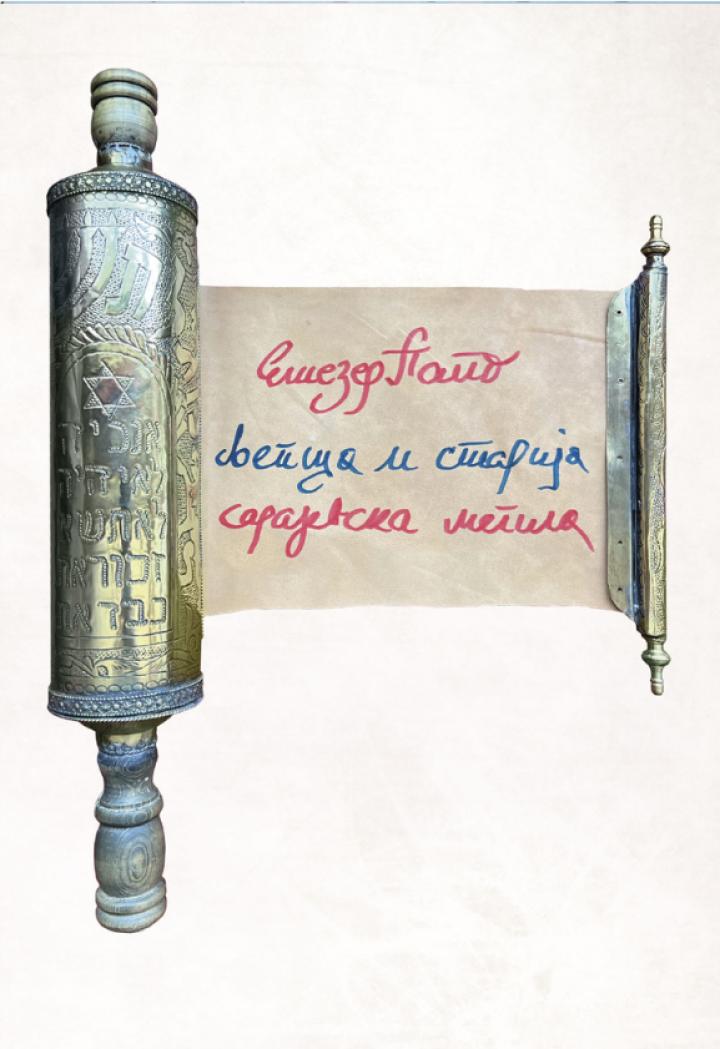 Елиезер Папо
љепша и старија
сарајевска мегила
אנכי ה
לא יהיה
לא תשא
זכור את
כבד את